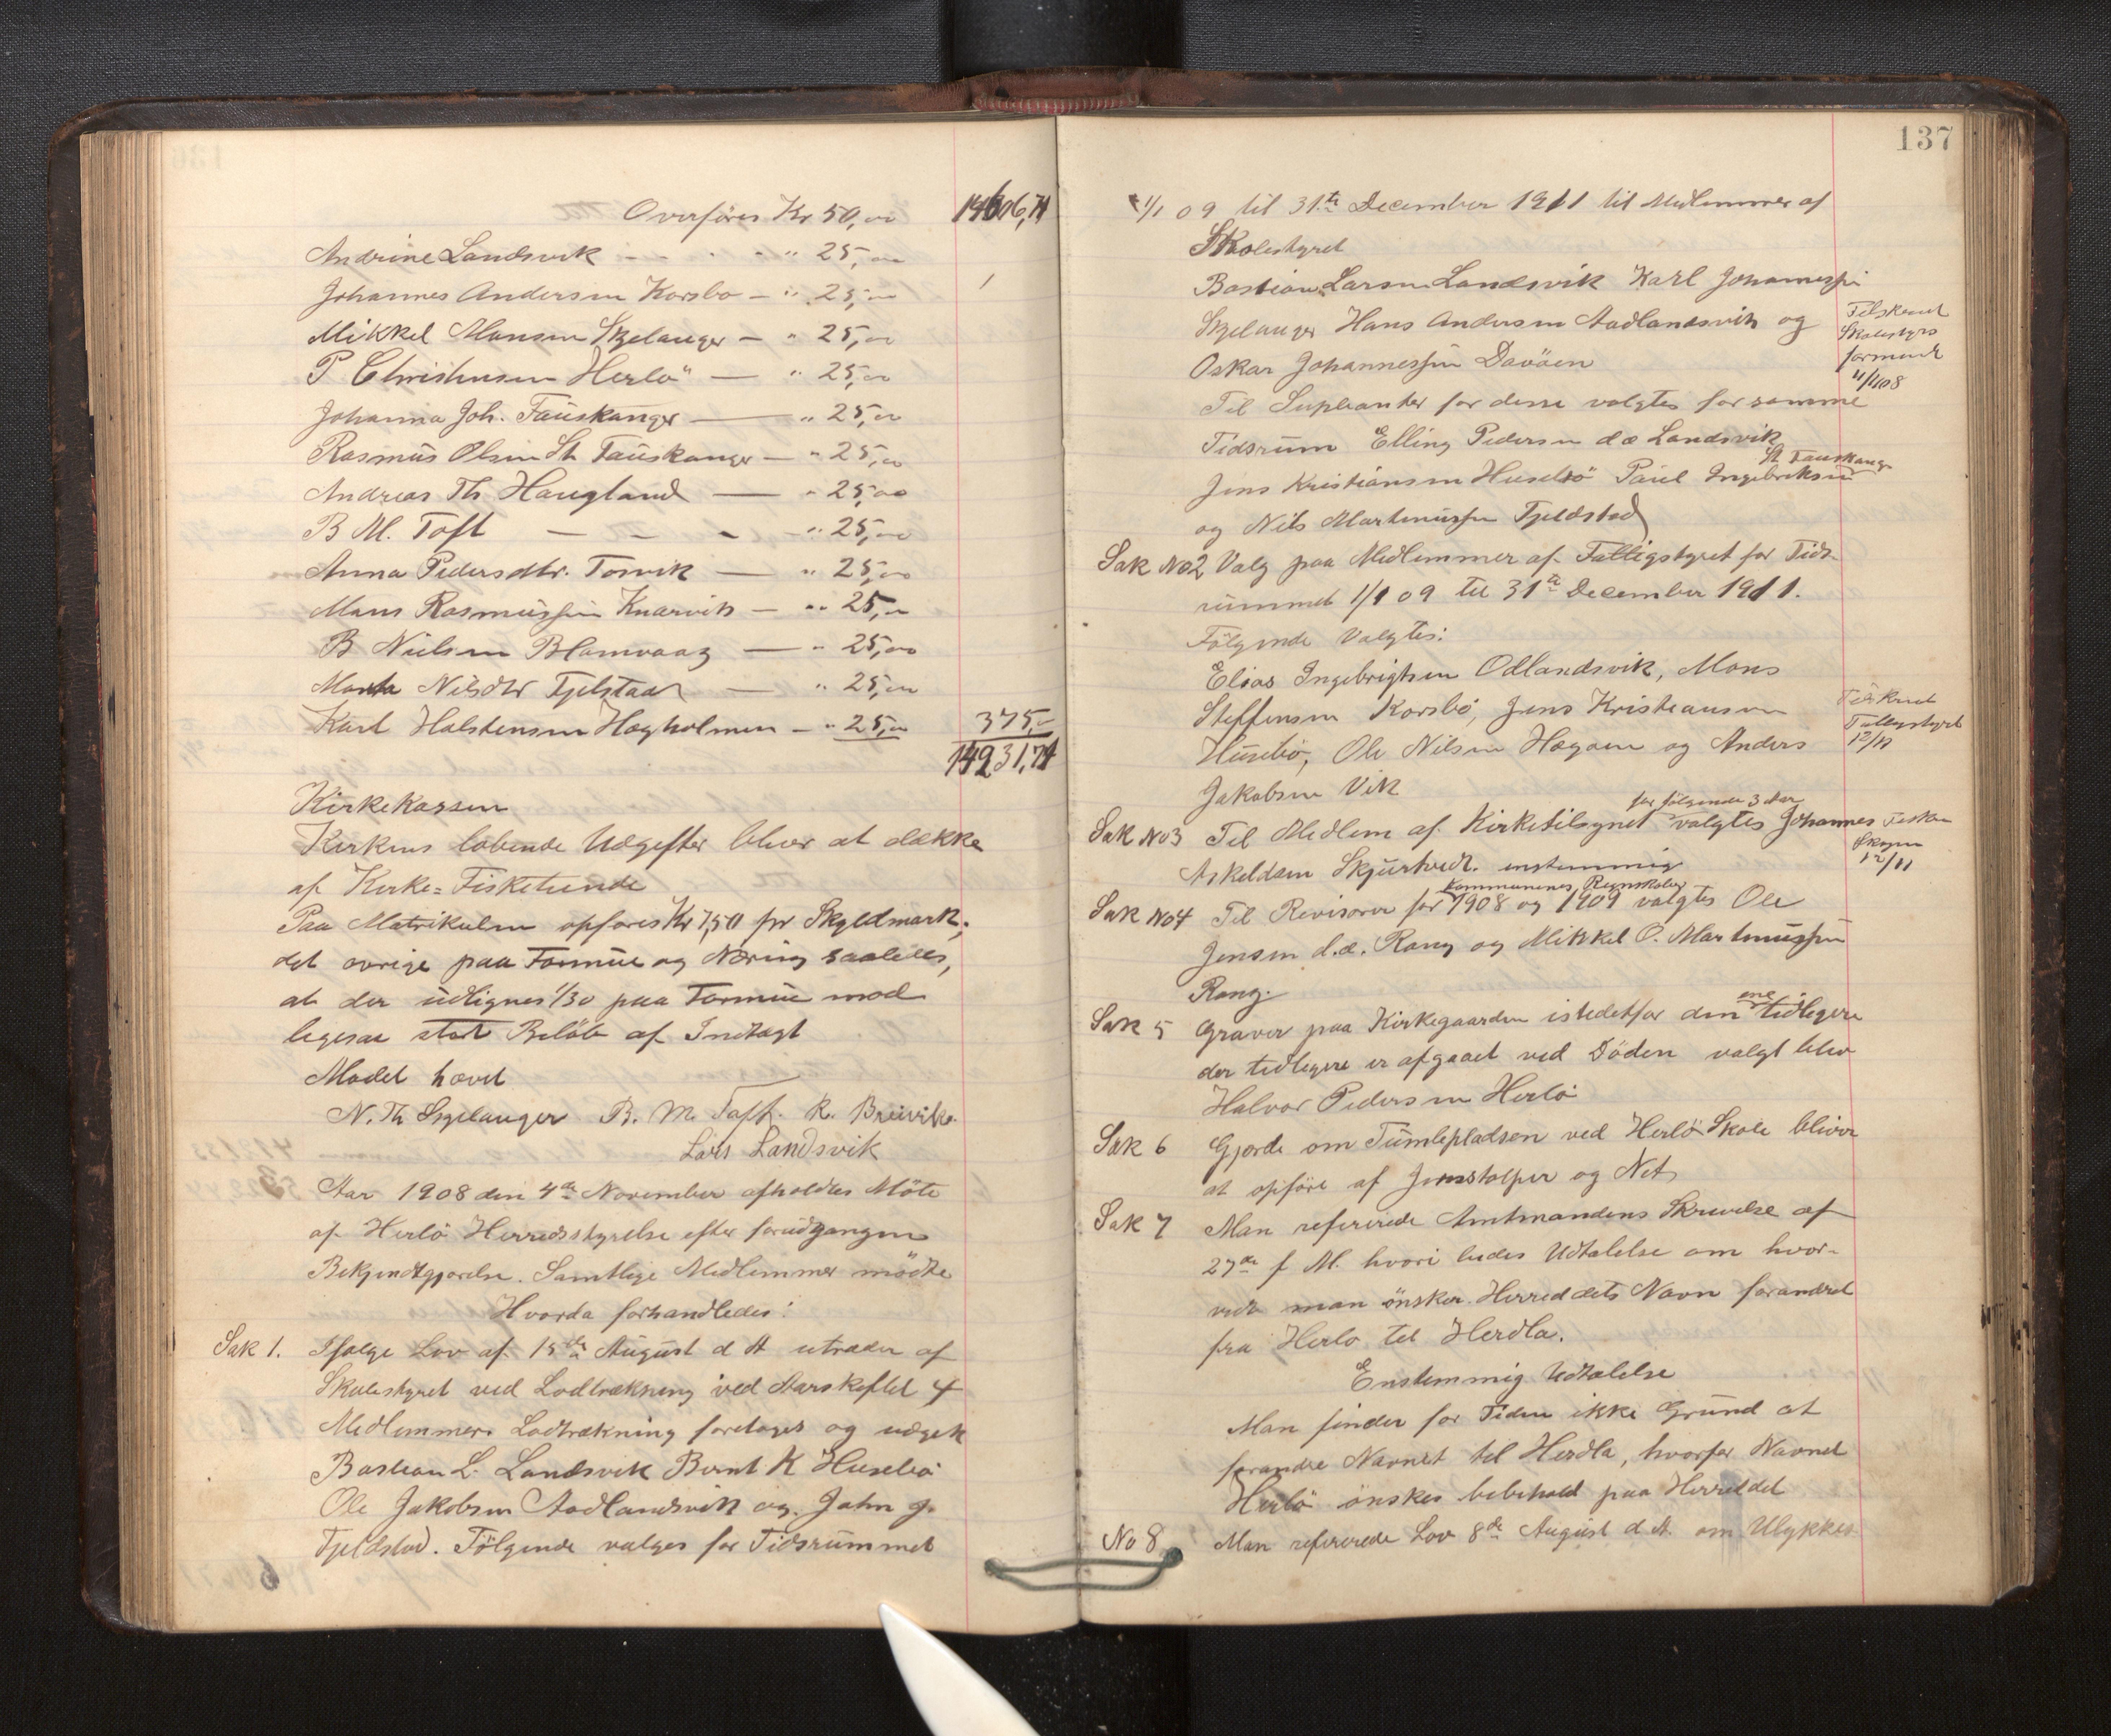 Overföres Kr 50,00 14606,71
Andrine Landsvik — " 25,00
Johannes Andersen Korsbö — " 25,00
Mikkel Monsen Skjelanger — " 25,00
P Christensen Herlö — " 25,00
Johanna Joh. Fauskanger — " 25,00
Rasmus Olsen St Fauskanger — " 25,00
Andreas Th. Haugland — " 25,00
B M. Toft — — — " 25,00
Anna Pedersdtr. Torsvik — " 25,00
Mons Rasmussen Knarvik — " 25,00
B Nielsen Blomvaag — " 25,00
Marta Nilsdtr Fjelstad — " 25,00
Karl Halstensen Hagholmen — " 25,00 375,-
14931,71
Kirkekassen
Kirkens löbende Udgifter bliver at dække
af Kirke-Fisketiende
Paa Matrikulen opföres Kr 7,50 pr Skyldmark,
det övrige paa Formue og Næring saaledes,
at der udlignes 1/30 paa Formue mod
ligesaa stort Belöb af Indtægt
Mödet hævet
N. Th Skjelanger B. M. Toft. R. Breivik.
Lars Landsvik
Aar 1908 den 4de November afholdtes Möte
af Herlö Herredsstyrelse efter forudgangen
Bekjendtgjörelse. Samtlige Medlemmer mödte
Hvorda forhandledes:
Sak 1. Ifölge Lov af 15de August d A utræder af
Skolestyret ved Lodtrækning ved Aarskiftet 4
Medlemmer. Lodtrækning foretoges og udgik
Bastian L. Landsvik Bernt K Husebö
Ole Jakobsen Aadlandsvik og John J.
Fjeldstad. Fölgende valges for Tidsrummet
137
1/1 09 til 31te December 1911 til Medlemmer af
Skolestyret
Bastian Larsen Landsvik Karl Johannessen
Skjelanger Hans Andersen Aadlandsvik og
Oskar Johannessen Davöen
Tilskrevet
Skolestyrs
formand
11/1108
Til Supleanter for disse valgtes for samme
Tidsrum Elling Pedersen d.æ Landsvik
Jens Kristiansen Husebö Paul Ingebriktsen St Fauskang
og Nils Martinussen Fjeldstad
Sak No 2 Valg paa Medlemmer af Fattigstyret for Tids-
rummet 1/1 09 til 31te December 1911.
Fölgende Valgtes:
Elias Ingebrigtsen Odlandsvik, Mons
Steffensen Korsbö, Jens Kristiansen
Husebö, Ole Nilsen Hagöen og Anders
Jakobsen Vik
Tilskrevet
Fattigstyret
12/11
Sak No 3 Til Medlem af Kirketilsynet for fölgende 3 Aar valgtes Johannes
Askeldsen Skjurtveit. enstemmig
12/11
Sak No 4 Til Revisorer for Kommunenes Regnskaber 1908 og 1909 valgtes Ole
Jensen d.æ. Rong og Mikkel O. Martinussen
Rong.
Sak 5 Graver paa Kirkegaarden istedetfor den ene tidligere
der tidligere er afgaaet ved Döden valgt blev
Halvor Pedersen Herlö
Sak 6 Gjærde om Tumlepladsen ved Herlö Skole bliver
at opföre af Jernstolper og Net
Sak 7 Man refererede Amtmandens Skrivelse af
27de f M. hvori bedes Udtalelse om hvor-
vidt man önsker Herreddets Navn forandret
fra Herlö til Herdla.
Enstemmig Udtalelse
Man finder for Tiden ikke Grund at
forandre Navnet til Herdla, hvorfor Navnet
Herlö önskes bibehold paa Herreddet
No 8 Man refererede Lov 8de August d.A. om Ulykkes